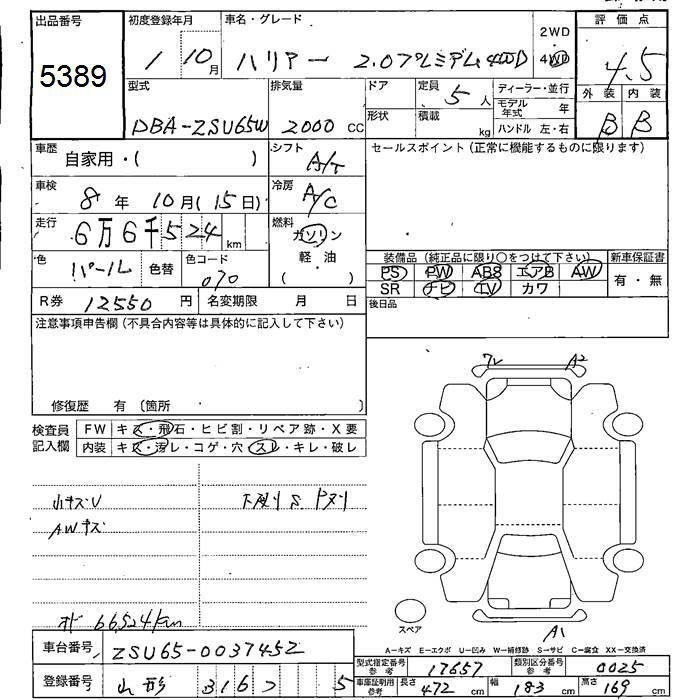 出品番号
5389
初度登録年月
1 10月
車名・グレード
ハリアー 2.0プレミアム4WD
2WD
4WD
評価点
4.5
外装 内装
B B
型式
DBA-ZSU65W
排気量
2000 CC
ドア
形状
定員
5人
積載
kg
ディーラー・並行
モデル年式 年
ハンドル 左・右
車歴
自家用・( )
シフト
A/T
セールスポイント(正常に機能するものに限ります)
車検
8年 10月(15日)
冷房
A/C
走行
6万6千524 km
燃料
ガソリン
軽・油
( )
色
パール
色替
色コード
070
装備品(純正品に限り○をつけて下さい)
PS PW ABS エアB AW
SR ナビ TV カワ
新車保証書
有・無
R券 12550 円
名変期限 月 日
後日品
注意事項申告欄(不具合内容等は具体的に記入して下さい)
修復歴 有 〔箇所 〕
検査員記入欄
FW キズ・飛石・ヒビ割・リペア跡・X要
内装 キズ・汚レ・コゲ・穴・スレ・キレ・破レ
小キズU
AWキズ
オド 66524km
A2
A1
スペア
A−キズ E−エクボ U−凹み W−補修跡 S−サビ C−腐食 XX−交換済
車台番号
ZSU65-0037452
登録番号
山形 316 5
型式指定番号 参考
17657
類別区分番号 参考
0025
車庫証明用 参考
長さ 472 cm
幅 183 cm
高さ 169 cm